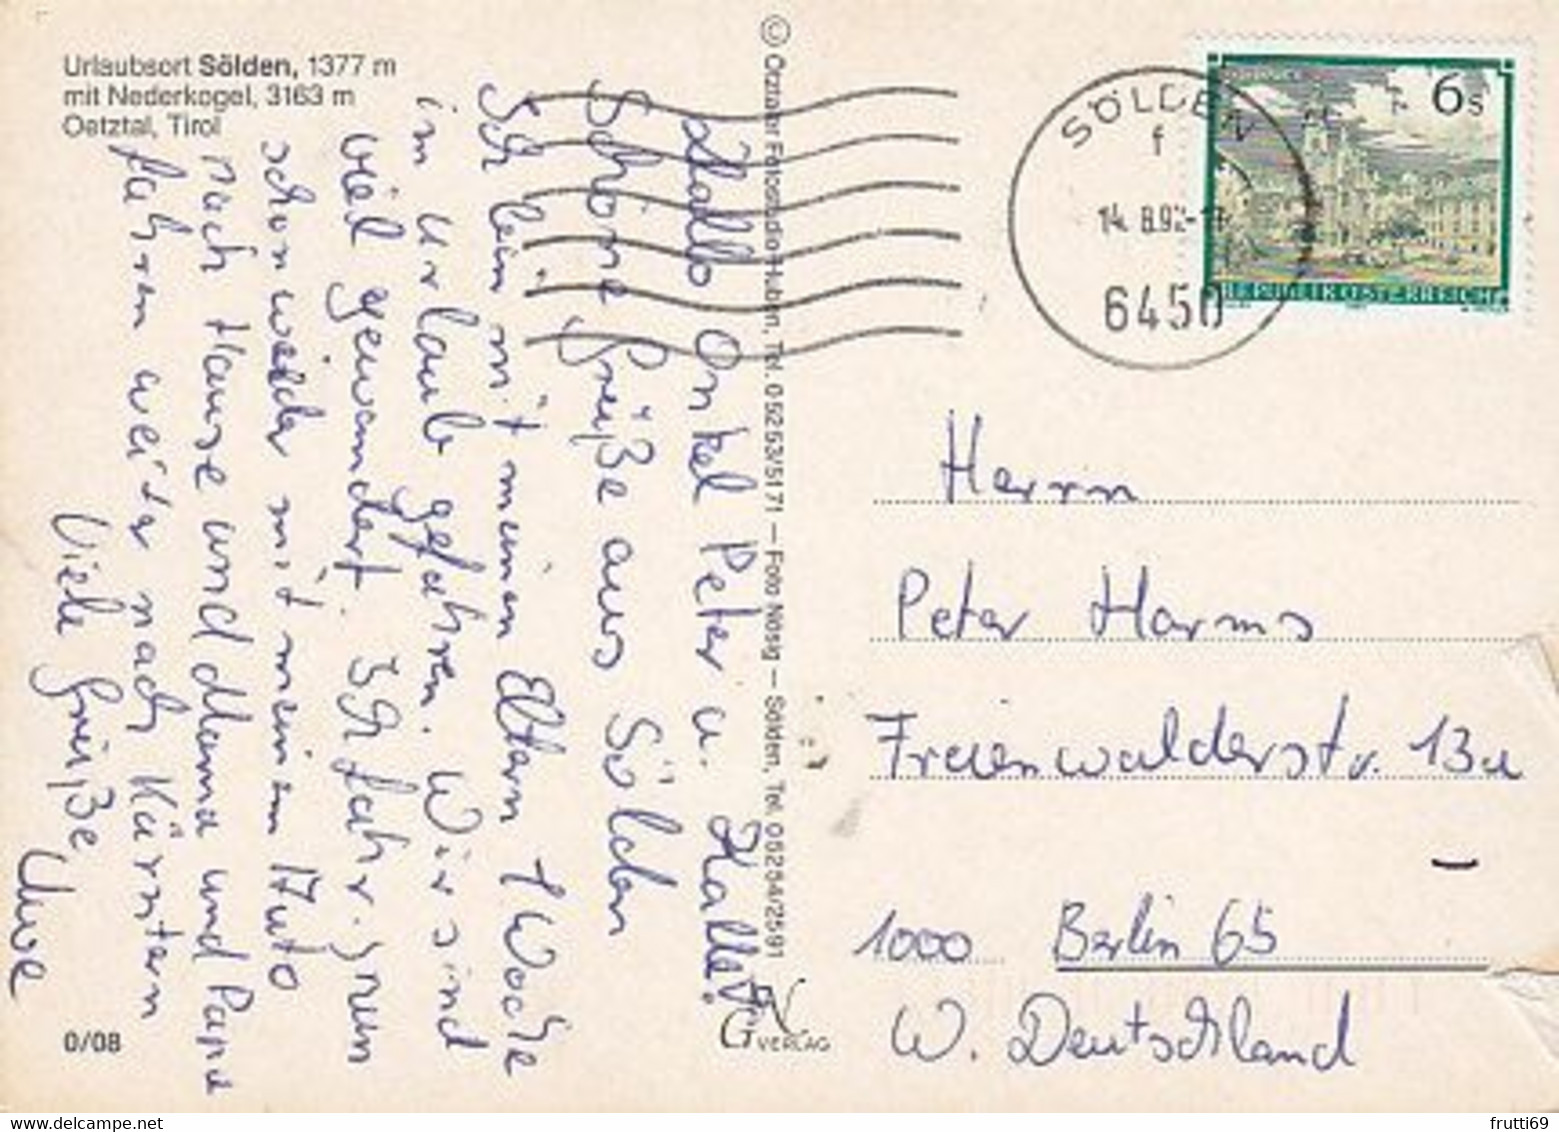 Urlaubsort Sölden, 1377 m
mit Nederkogel, 3163 m
Oetztal, Tirol
Hallo Onkel Peter u. Kalle!
Schöne Grüße aus Sölden
Ich bin mit meinen Eltern 1 Woche
in Urlaub gefahren. Wir sind
viel gewandert. Ich fahr
schon wieder mit meinem Auto
nach Hause und Mama und Papa
fahren weiter nach Kärnten
Viele Grüße
Uwe
0/08
© Ötztaler Fotostudio Huben, Tel. 05253/5171 — Foto Nösig — Sölden, Tel. 05254/2591
VERLAG
SÖLDEN
f
14.8.92-
6450
6s
REPUBLIK ÖSTERREICH
Herrn
Peter Harms
Freienwalderstr. 13a
1000 Berlin 65
W. Deutschland
frutti69